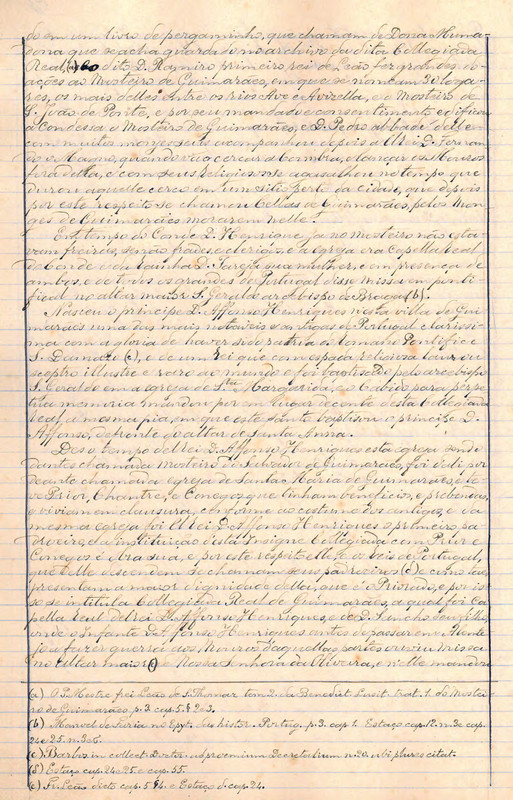 do em um livro de pergaminho, que chamam de Dona Muma-
dona que se acha guardado no archivo da dita Collegiada
Real, (a) e o dito D. Ramiro primeiro rei de Leão fez grandes do-
ações ao Mosteiro de Guimarães, em que se nomeam 30 loga-
res, os mais delles entre os rios Ave e Avizella, e o Mosteiro de
S. João de Ponte, e por seu mandado e consentimento edificou
a Condessa o Mosteiro de Guimarães, e D. Pedro abbade delle
com muitos monges seus acompanhou depois a El rei D. Fernan-
do o Magno, quando veio cercar a Coimbra, e lançar os Mouros
fora della, e com seus Religiosos se agasalhou no tempo, que
durou aquelle cerco em um sitio perto da cidade, que depois
por este respeito se chamou Cellas de Guimarães, pelos Mon-
ges de Guimarães morarem nelle.
Em tempo do Conde D. Henrique, ja no mosteiro não esta-
vam freiras, senão frades, e clerigos, e a egreja era Capella Real
do Conde e da rainha D. Tareja sua mulher, e em presença de
ambos, e de todos os grandes de Portugal disse missa em ponti-
fical no altar maior S. Geraldo arcebispo de Braga (b).
Nasceu o principe D. Affonso Henriques nesta villa de Gui-
marães uma das mais notaveis e antigas de Portugal e clarissi-
ma com a gloria de haver sido patria do romano Pontifice
S. Damazo (c), e de um Rei que com espada religiosa
sceptro illustre e raro ao mundo e foi baptisado pelo arcebispo
S. Geraldo em a egreja de Sta Margarida, e o Cabido para perpe-
tua memoria mandou por em lugar decente desta Collegiada
Real a mesma pia, em que este santo baptisou o principe D.
Affonso, defronte do altar de Santa Anna.
Des o tempo del rei D. Affonso Henriques esta egreja sendo
dantes chamada mosteiro do Salvador de Guimarães, foi dali por
deante chamada egreja de Santa Maria de Guimarães, e te-
ve Prior, Chantre, e Conegos que tinham beneficio, e prebendas,
e viviam em clausura, conforme ao costume dos antigos, e da
mesma egreja foi El rei D. Affonso Henriques o primeiro, pa-
droeiro, e a instituição desta Insigne Collegiada com Prior e
Conegos é obra sua, e por este respeito elle, e os reis de Portugal,
que delle descendem se chamam seus padroeiros (d) e como taes
presentam a maior dignidade della, que é o Priorado, e por is-
so se intitula Collegiada Real de Guimarães, a qual foi Ca-
pella real del rei D. Affonso Henriques, e de D. Sancho seu filho,
onde o Infante D. Affonso Henriques antes de passar em Alente-
jo a fazer guerra aos Mouros daquellas partes ouviu missa
no altar maior (e) de Nossa Senhora da Oliveira, e nelle mandou
(a) O P. Mestre frei Leão de S. Thomaz tom. 2. da Benedict. Lusit. trat. 1. do Mostei-
ro de Guimarães. p. 3. cap. 5. § 2 e 3.
(b) Manoel de Faria no Epyt. das histor. Portug. p. 3. cap. 1. Estaço cap. 12. n. 3 e cap.
24 e 25. n. 3 e 6.
(c) Barbos. in collect. Doctor. ad proemium Decretalium n. 20. ubi plures citat.
(d) Estaço cap. 24 e 25. e cap. 55.
(e) Fr. Leão dicto cap. 5 § 4. e Estaço d. cap. 24.